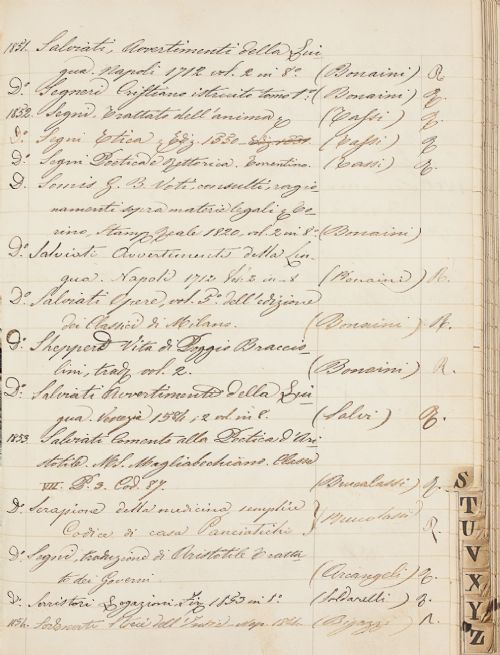 1851. Salviati, Avvertimenti della Lin-
gua. Napoli 1712 vol. 2 in 8° (Bonaini) R.
D° Segneri Cristiano istruito tomo 1° (Bonaini) R.
1852. Segni. Trattato dell'anima (Tassi) R.
D° Segni Etica Ediz. 1550 (Tassi) R.
D° Segni Poetica e Rettorica. (Tassi) R.
D. G. B. Voti, consulti, ragio-
namenti sopra materie legali, To-
rino, Stamp. Reale 1820, vol. 2 in 8° (Bonaini)
D° Salviati Avvertimenti della Lin-
gua. Napoli 1712 2 in 8 (Bonaini) R.
D° Salviati Opere, vol. 5° dell'edizione
dei Classici di Milano. (Bonaini) R.
D° Shepperd Vita di Poggio Braccio-
lini, trad. vol. 2. (Bonaini) R.
D° Salviati Avvertimenti della Lin-
gua. Venezia 1584, 2 vol. in 8. (Salvi) R.
1853 Salviati Comento alla Poetica d'Ari-
stotile. MS. Magliabechiano. Classe
VII. P. 3. Cod. 87. (Brucalassi) R.
D° Serapione della medicina semplice
Codice di casa Panciatichi } Brucalassi R.
D° Segni, traduzione di Aristotile Tratta-
to dei Governi. (Arcangeli) R.
D° Sorristori Legazioni Fir. 1853 in 1° (Soldarelli) R.
1854. dell' (Bigazzi) R.
S
T
U
V
X
Y
Z